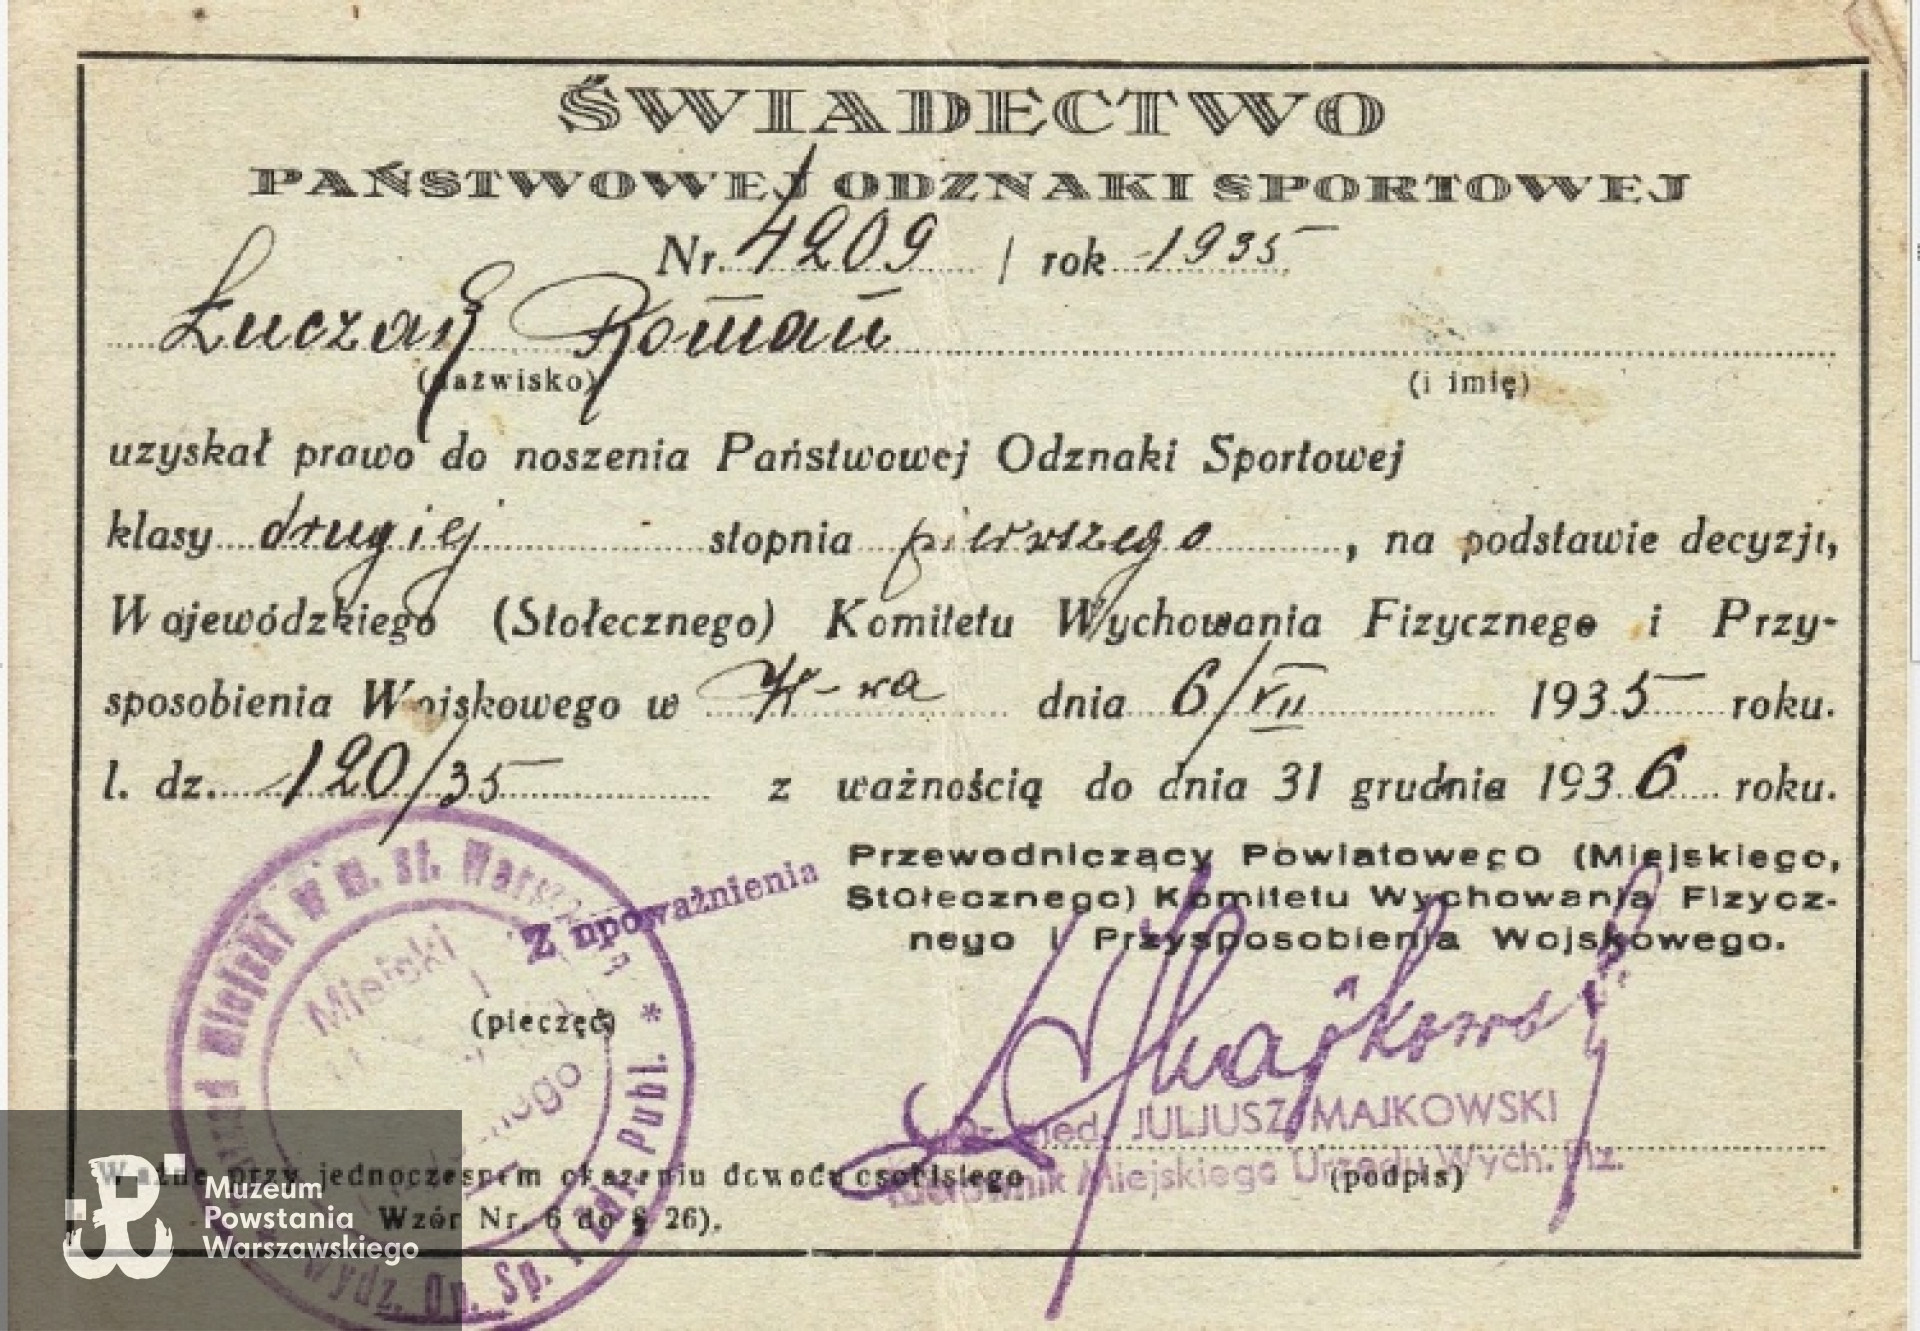 ŚWIADECTWO
PAŃSTWOWEJ ODZNAKI SPORTOWEJ
Nr. 4209 / rok 1935
Łuczak Roman
(nazwisko) (i imię)
uzyskał prawo do noszenia Państwowej Odznaki Sportowej
klasy drugiej stopnia pierwszego, na podstawie decyzji,
Wojewódzkiego (Stołecznego) Komitetu Wychowania Fizycznego i Przy-
sposobienia Wojskowego w W-wa dnia 6/VII 1935 roku.
l. dz. 120/35 z ważnością do dnia 31 grudnia 1936 roku.
Przewodniczący Powiatowego (Miejskiego,
Stołecznego) Komitetu Wychowania Fizycz-
nego i Przysposobienia Wojskowego.
Z upoważnienia
(pieczęć)
Zarząd Miejski w m. st. Warszawie * Wydz. Op. Sp. i Zdr. Publ. *
Miejski
Majkowski
Dr. med. JULJUSZ MAJKOWSKI
Kierownik Miejskiego Urzędu Wych. Fiz.
(podpis)
Ważne przy jednoczesnem okazeniu dowodu osobistego
Wzór Nr. 6 do § 26).
Muzeum
Powstania
Warszawskiego